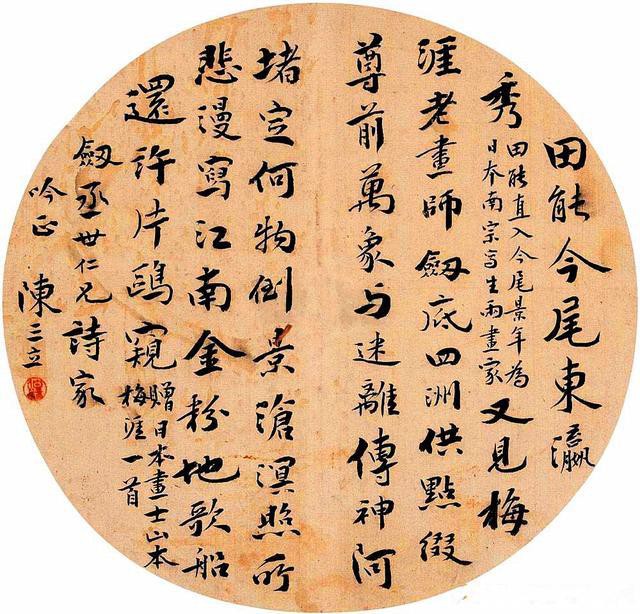 田能今尾東瀛
秀田能直入今尾景年為
日本南宗寫生兩畫家又見梅
涯老畫師劔底四洲供點綴
尊前萬象与迷離傳神阿
堵定何物倒景滄溟照所
悲漫寫江南金粉地歌船
還許片鷗窺贈日本畫士山本
梅涯一首
劔丞世仁兄詩家
吟正 陳三立